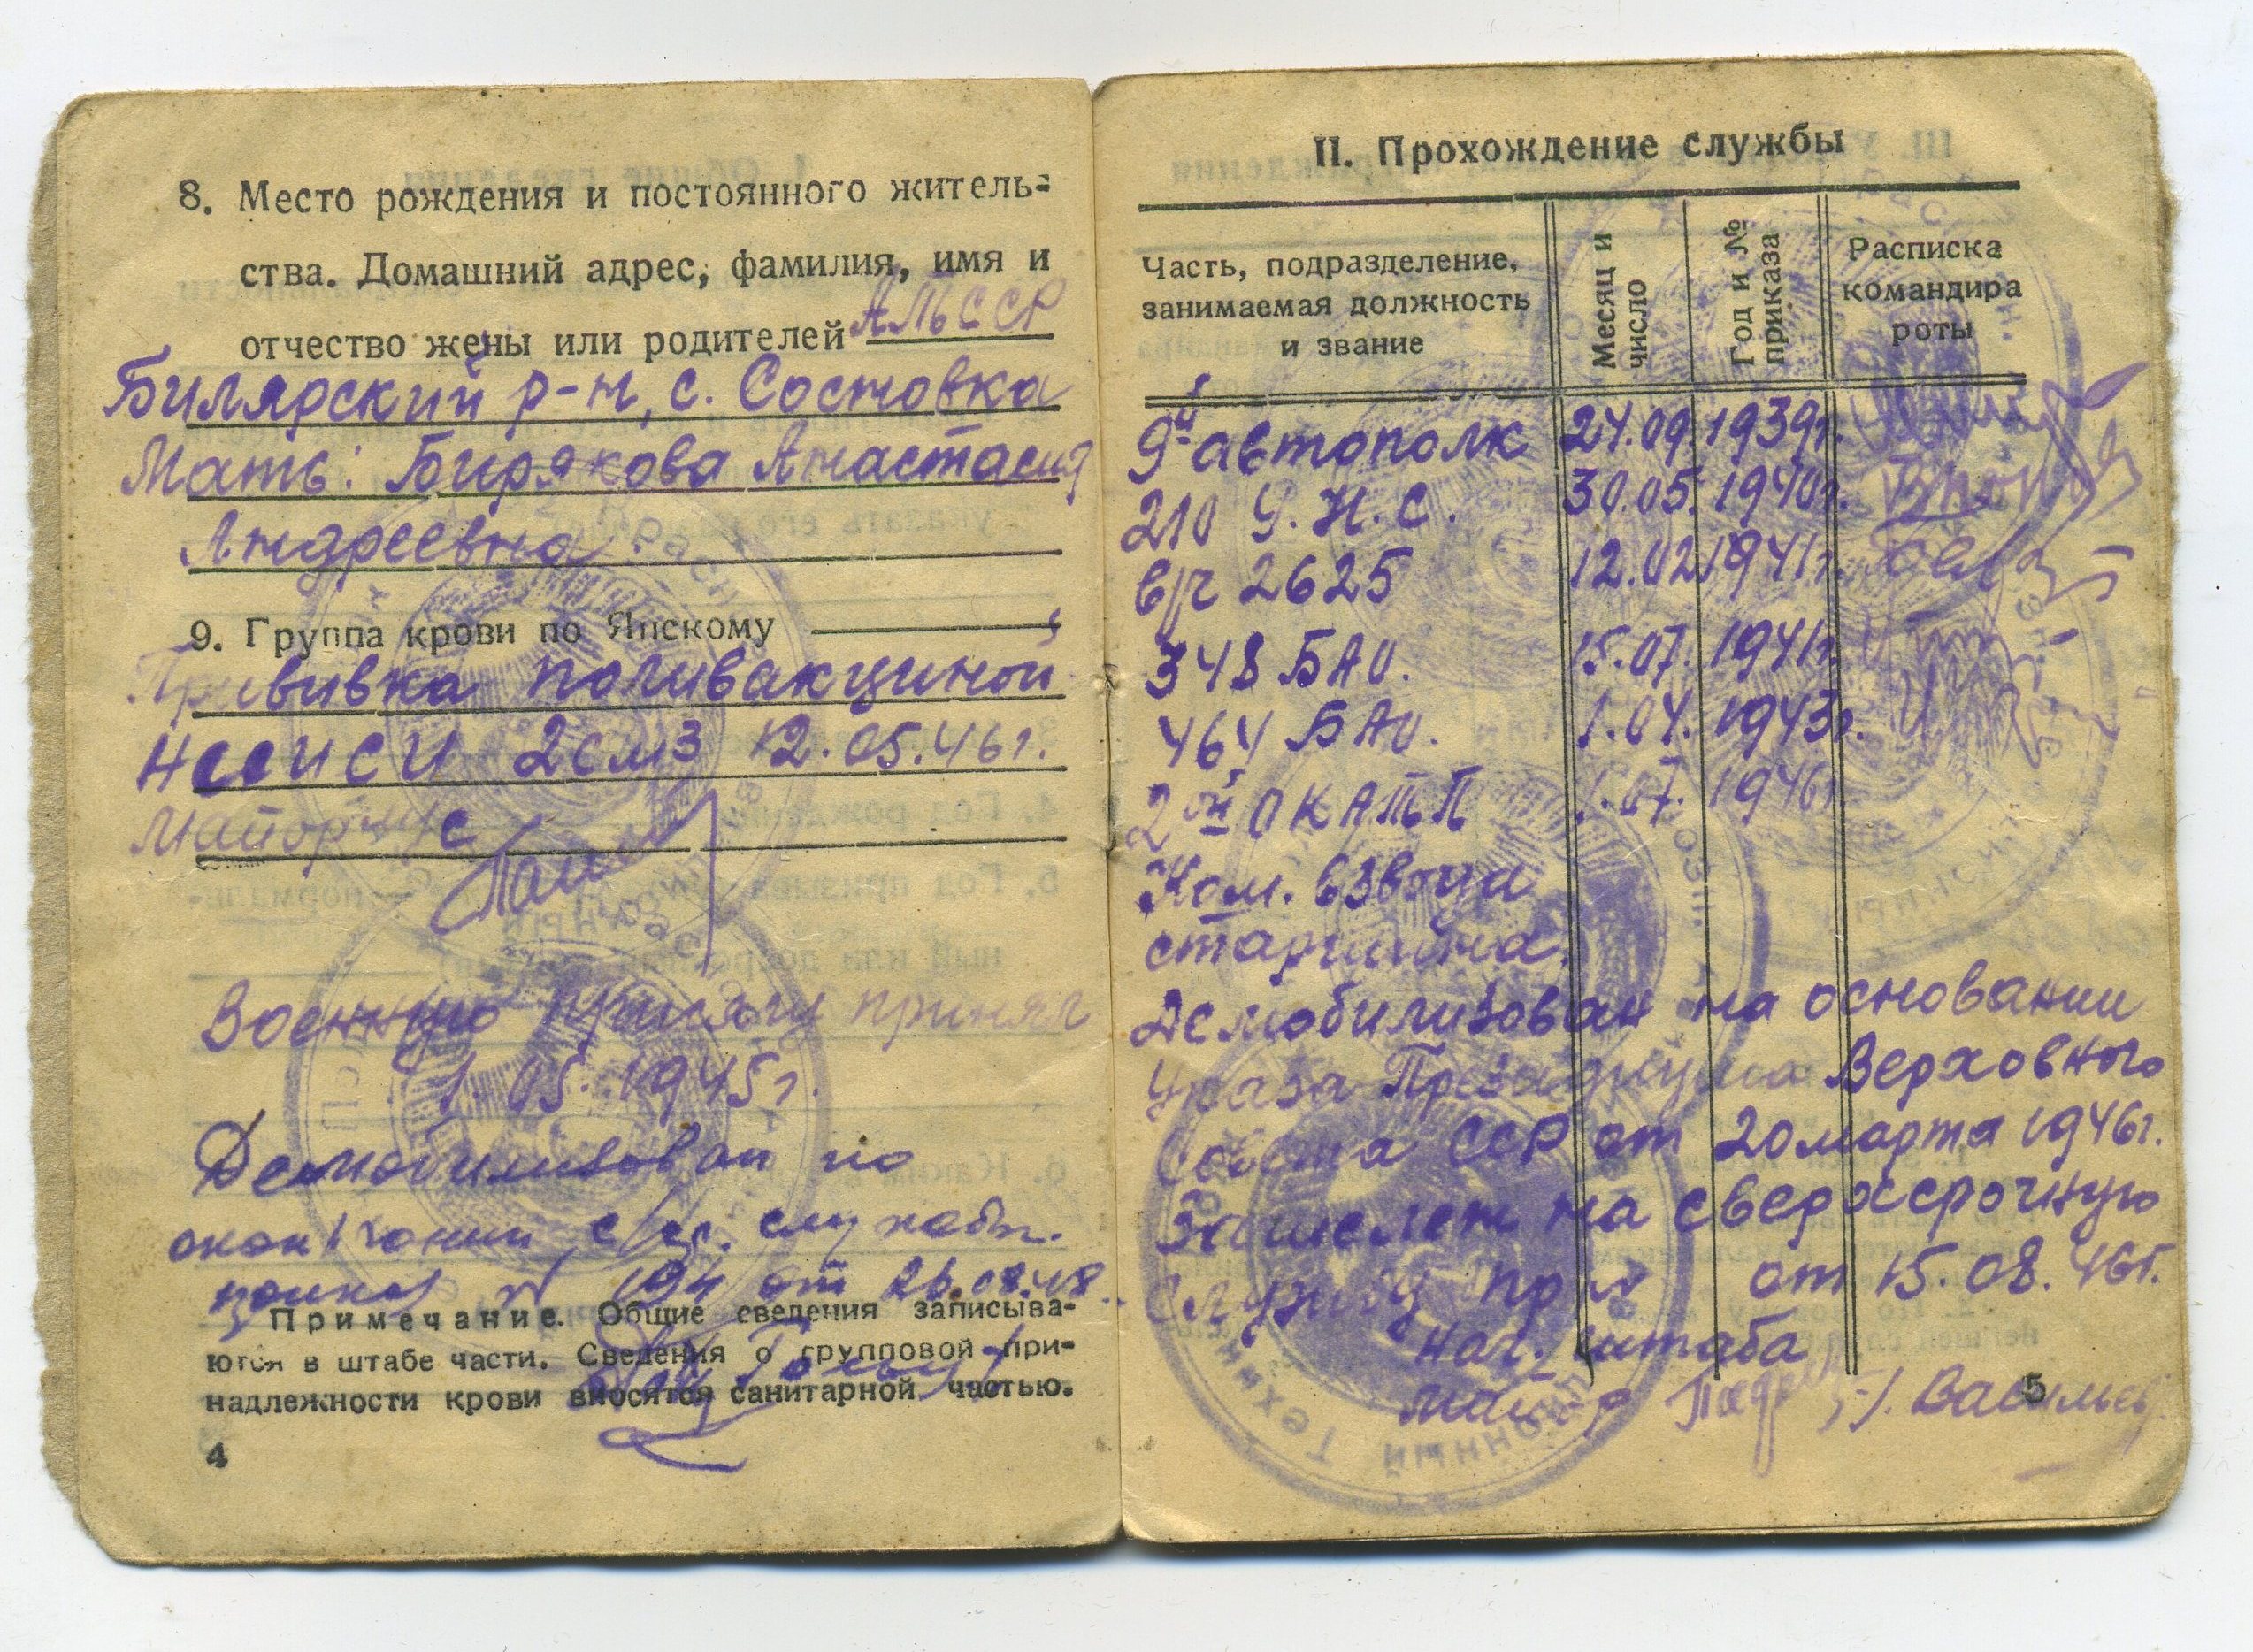 8. Место рождения и постоянного житель-
ства. Домашний адрес, фамилия, имя и
отчество жены или родителей
Билярский р-н, с. Сосновка
Мать: Бирякова Анастасия
Андреевна.
9. Группа крови по Янскому
Прививка поливакциной
НИИСИ 2 см3 12.05.46г.
Майор м/с
Военную присягу принял
1.05.1945г.
Демобилизован по
окончании с/ср. службы.
приказ № 194 от 26.08.48
Примечание. Общие сведения записыва-
ются в штабе части. Сведения о групповой при-
надлежности крови вносятся санитарной частью.
4
II. Прохождение службы
Часть, подразделение, занимаемая должность и звание
Месяц и число
Год и № приказа
Расписка командира роты
9й автополк 24.09. 1939г.
210 30.05. 1940г.
в/ч 2625 12.02 1941г.
348 БАО. 15.07. 1941г.
464 БАО. 1.04. 1943г.
2ой 1.07. 1946г
Ком. взвода
старшина.
Демобилизован на основании
Указа Президиума Верховного
Совета ССР от 20 марта 1946г.
Зачислен на сверхсрочную
службу пр № от 15.08.46г.
нач. штаба
майор Васильев
5